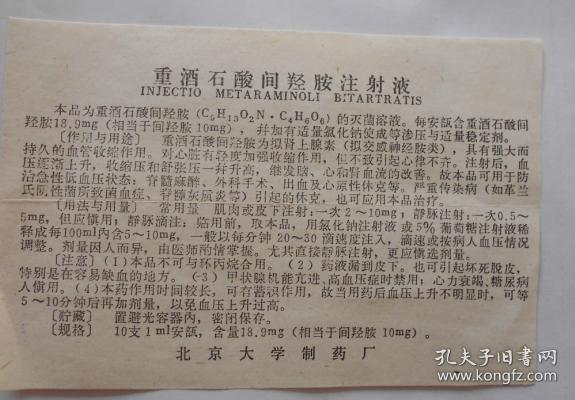 重酒石酸间羟胺注射液
INJECTIO METARAMINOLI BITARTRATIS
本品为重酒石酸间羟胺(C₉H₁₃O₂N·C₄H₆O₆)的灭菌溶液。每安瓿含重酒石酸间
羟胺18.9mg(相当于间羟胺10mg),并加有适量氯化钠使成等渗压与适量稳定剂。
〔作用与用途〕 重酒石酸间羟胺为拟肾上腺素(拟交感神经胺类),具有强大而
持久的血管收缩作用。对心脏有轻度加强收缩作用,但不致引起心律不齐。注射后,血
压逐渐上升,收缩压和舒张压一并升高,继发脑、心和肾血流的改善。故本品可用于防
治急性低血压状态:脊髓麻醉、外科手术、出血及心原性休克等。严重传染病(如革兰
氏阴性菌所致菌血症、脊髓灰质炎等)引起的休克,也可应用本品治疗。
〔用法与用量〕 常用量 肌肉或皮下注射:一次2~10mg;静脉注射:一次0.5~
5mg,但应慎用;静脉滴注:临用前,取本品,用氯化钠注射液或5%葡萄糖注射液稀
释成每100ml内含5~10mg,一般以每分钟20~30滴速度注入,滴速或按病人血压情况
调整。剂量因人而异,由医师酌情掌握。尤其直接静脉注射,更应慎选剂量。
〔注意〕(1)本品不可与环丙烷合用。(2)药液漏到皮下。也可引起坏死脱皮,
特别是在容易缺血的地方。(3)甲状腺机能亢进、高血压症时禁用;心力衰竭、糖尿病
人慎用。(4)本药作用时间较长,可有蓄积作用,故当用药后血压上升不明显时,可等
5~10分钟后再加剂量,以免血压上升过高。
〔贮藏〕 置避光容器内,密闭保存。
〔规格〕 10支1ml安瓿,含量18.9mg(相当于间羟胺10mg)。
北京大学制药厂
孔夫子旧书网
www.kongfz.com